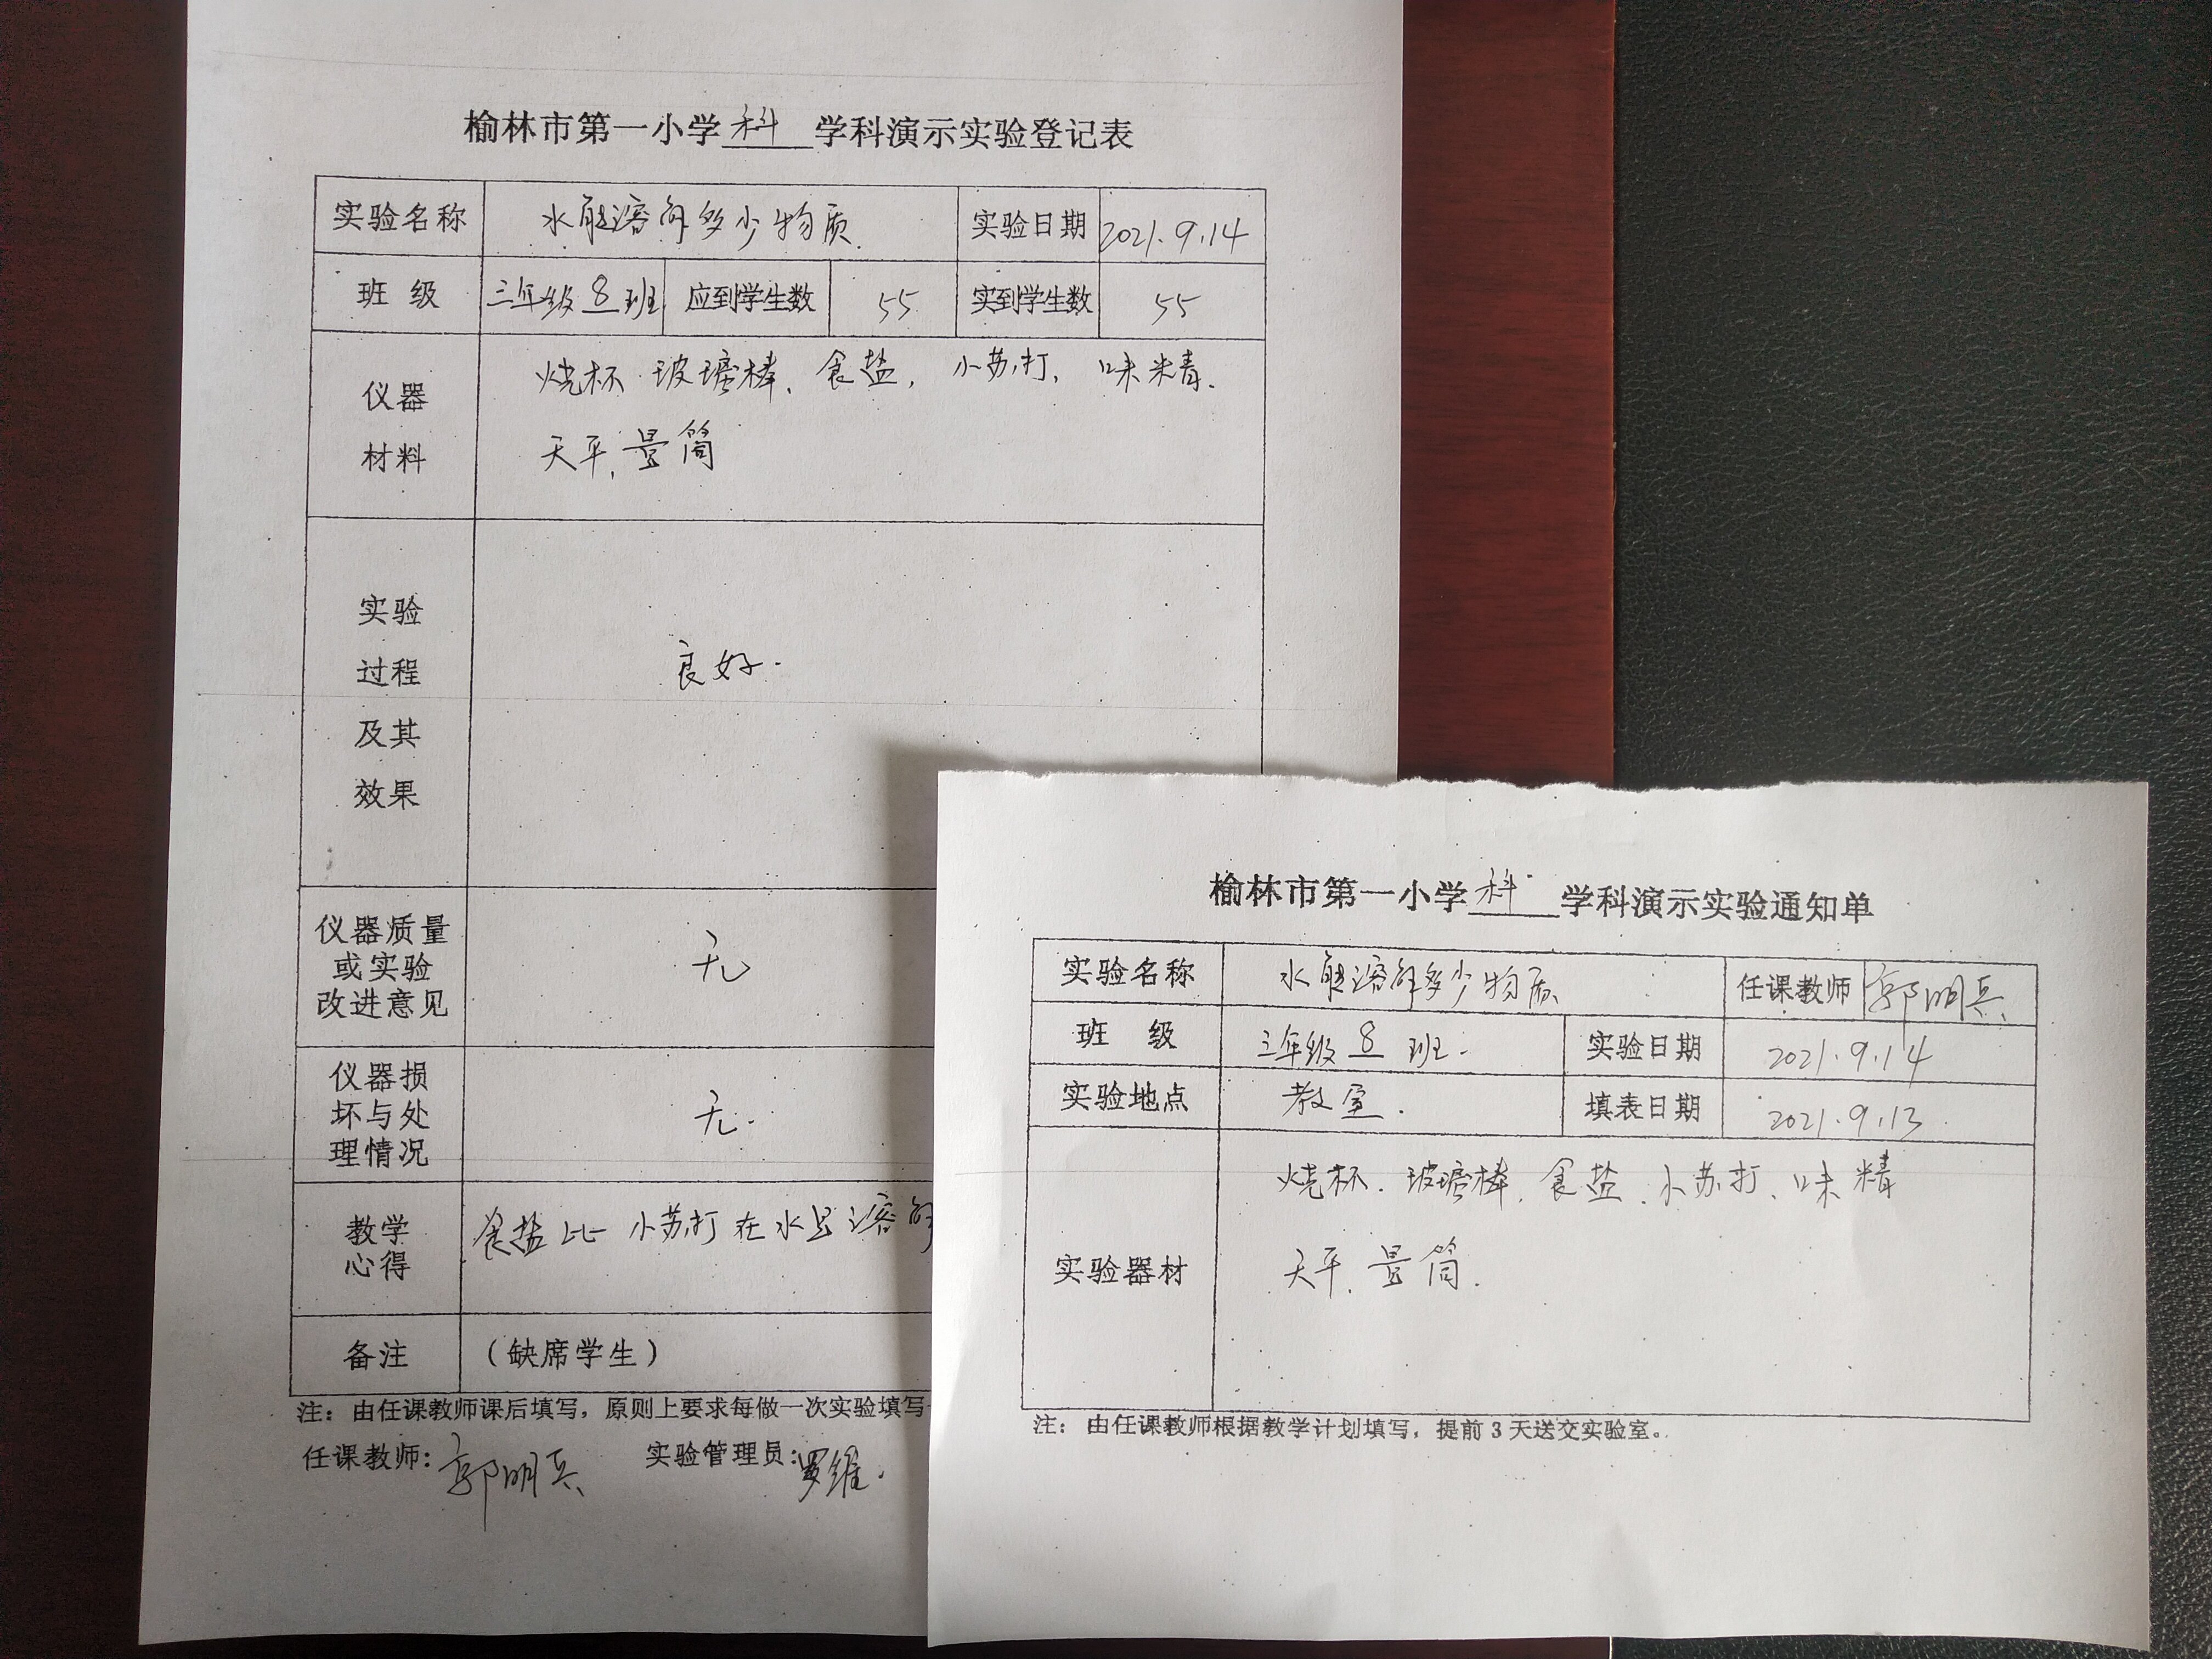 榆林市第一小学科学科演示实验登记表
实验名称 水能溶解多少物质 实验日期 2021.9.14
班 级 三年级8班 应到学生数 55 实到学生数 55
仪器 烧杯 玻璃棒、食盐，小苏打，味精.
材料 天平，量筒
实验
过程 良好.
及其
效果
仪器质量
或实验 无
改进意见
仪器损
坏与处 无.
理情况
教学 食盐比小苏打在水里溶解
心得
备注 （缺席学生）
注：由任课教师课后填写，原则上要求每做一次实验填写
任课教师：郭明兵 实验管理员：罗维.
榆林市第一小学科学科演示实验通知单
实验名称 水能溶解多少物质 任课教师 郭明兵
班 级 三年级8班. 实验日期 2021.9.14
实验地点 教室. 填表日期 2021.9.13.
烧杯.玻璃棒、食盐、小苏打、味精
实验器材 天平、量筒.
注：由任课教师根据教学计划填写，提前3天送交实验室。